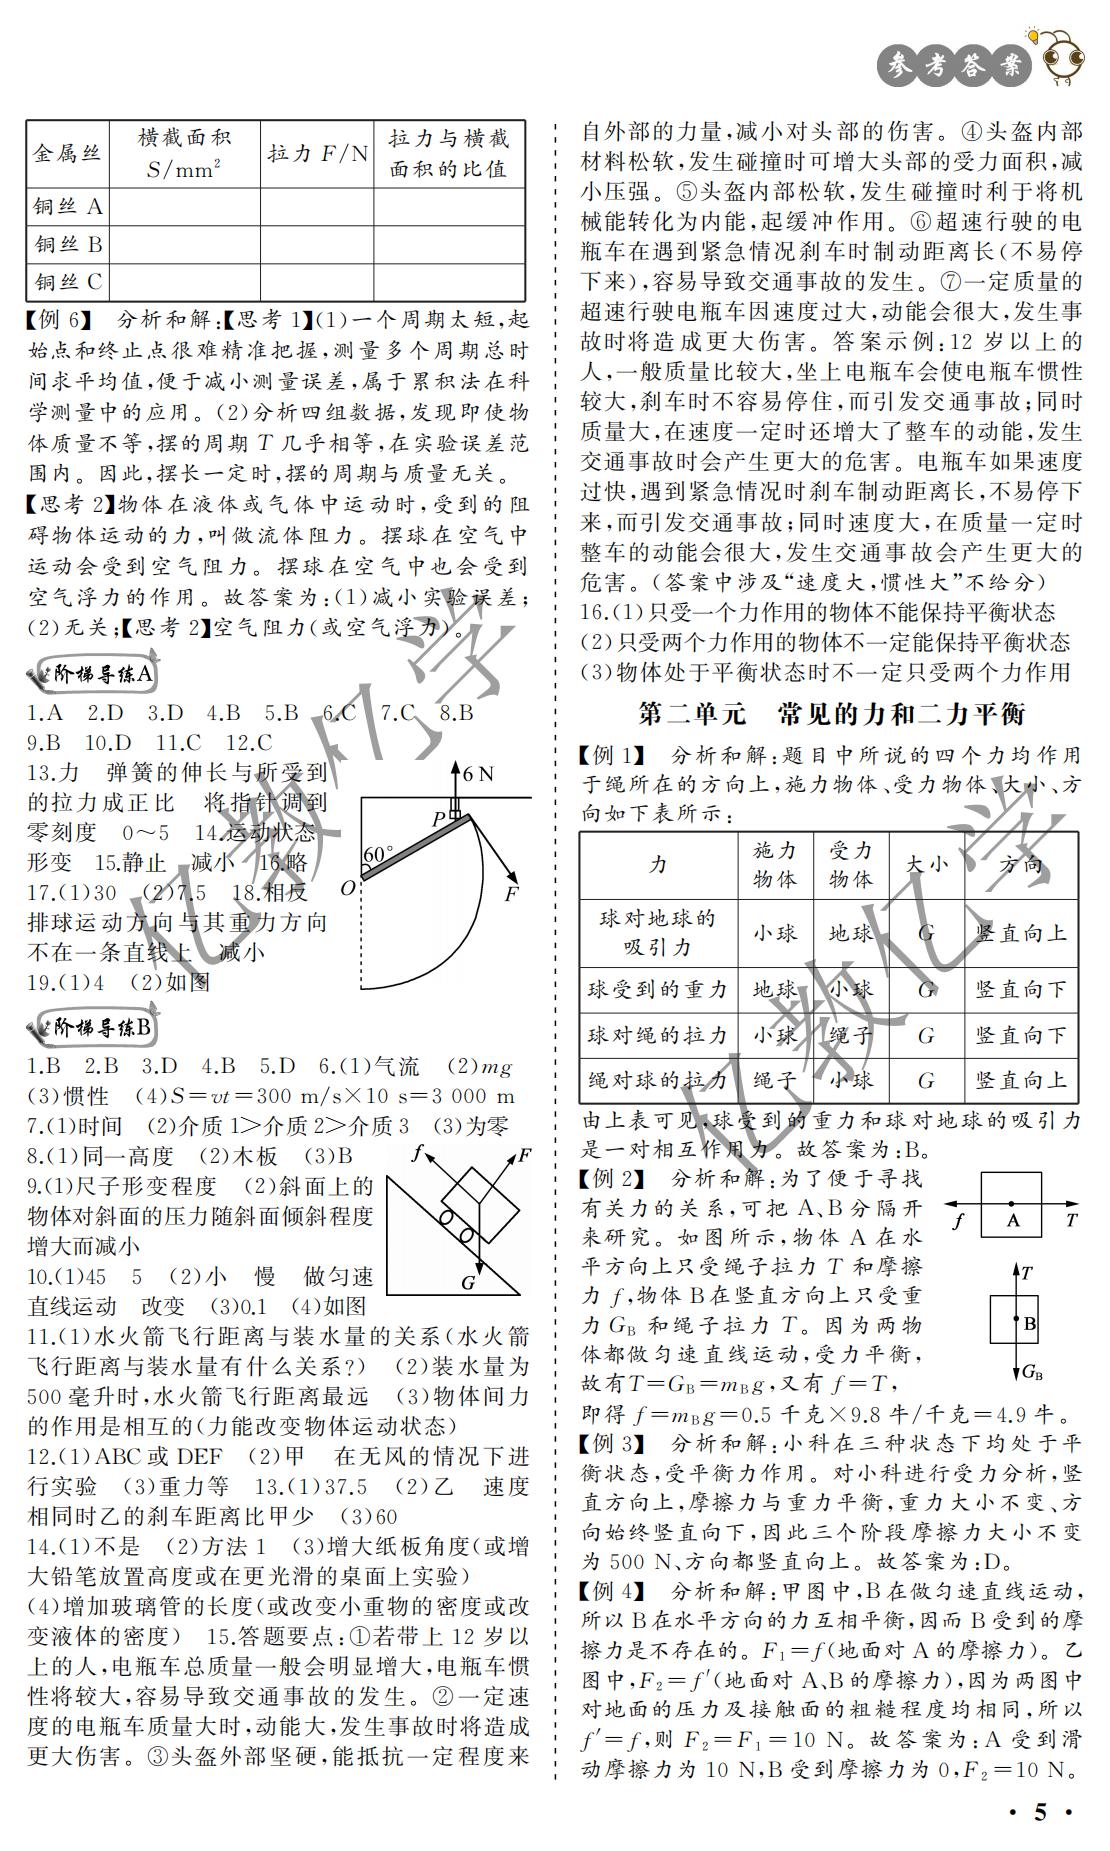 参考答案
金属丝 横截面积 S/mm² 拉力 F/N 拉力与横截面积的比值
铜丝 A
铜丝 B
铜丝 C
【例 6】 分析和解:【思考 1】(1)一个周期太短,起
始点和终止点很难精准把握,测量多个周期总时
间求平均值,便于减小测量误差,属于累积法在科
学测量中的应用。(2)分析四组数据,发现即使物
体质量不等,摆的周期 T 几乎相等,在实验误差范
围内。因此,摆长一定时,摆的周期与质量无关。
【思考 2】物体在液体或气体中运动时,受到的阻
碍物体运动的力,叫做流体阻力。摆球在空气中
运动会受到空气阻力。摆球在空气中也会受到
空气浮力的作用。故答案为:(1)减小实验误差;
(2)无关;【思考 2】空气阻力(或空气浮力)。
阶梯导练A
1.A 2.D 3.D 4.B 5.B 6.C 7.C 8.B
9.B 10.D 11.C 12.C
13.力 弹簧的伸长与所受到
的拉力成正比 将指针调到
零刻度 0～5 14.运动状态
形变 15.静止 减小 16.略
17.(1)30 (2)7.5 18.相反
排球运动方向与其重力方向
不在一条直线上 减小
19.(1)4 (2)如图
6 N
P
60°
O
F
阶梯导练B
1.B 2.B 3.D 4.B 5.D 6.(1)气流 (2)mg
(3)惯性 (4)S=vt=300 m/s×10 s=3 000 m
7.(1)时间 (2)介质 1>介质 2>介质 3 (3)为零
8.(1)同一高度 (2)木板 (3)B
9.(1)尺子形变程度 (2)斜面上的
物体对斜面的压力随斜面倾斜程度
增大而减小
10.(1)45 5 (2)小 慢 做匀速
直线运动 改变 (3)0.1 (4)如图
f
F
G
11.(1)水火箭飞行距离与装水量的关系(水火箭
飞行距离与装水量有什么关系?) (2)装水量为
500 毫升时,水火箭飞行距离最远 (3)物体间力
的作用是相互的(力能改变物体运动状态)
12.(1)ABC 或 DEF (2)甲 在无风的情况下进
行实验 (3)重力等 13.(1)37.5 (2)乙 速度
相同时乙的刹车距离比甲少 (3)60
14.(1)不是 (2)方法 1 (3)增大纸板角度(或增
大铅笔放置高度或在更光滑的桌面上实验)
(4)增加玻璃管的长度(或改变小重物的密度或改
变液体的密度) 15.答题要点:①若带上 12 岁以
上的人,电瓶车总质量一般会明显增大,电瓶车惯
性将较大,容易导致交通事故的发生。②一定速
度的电瓶车质量大时,动能大,发生事故时将造成
更大伤害。③头盔外部坚硬,能抵抗一定程度来
自外部的力量,减小对头部的伤害。④头盔内部
材料松软,发生碰撞时可增大头部的受力面积,减
小压强。⑤头盔内部松软,发生碰撞时利于将机
械能转化为内能,起缓冲作用。⑥超速行驶的电
瓶车在遇到紧急情况刹车时制动距离长(不易停
下来),容易导致交通事故的发生。⑦一定质量的
超速行驶电瓶车因速度过大,动能会很大,发生事
故时将造成更大伤害。答案示例:12 岁以上的
人,一般质量比较大,坐上电瓶车会使电瓶车惯性
较大,刹车时不容易停住,而引发交通事故;同时
质量大,在速度一定时还增大了整车的动能,发生
交通事故时会产生更大的危害。电瓶车如果速度
过快,遇到紧急情况时刹车制动距离长,不易停下
来,而引发交通事故;同时速度大,在质量一定时
整车的动能会很大,发生交通事故会产生更大的
危害。(答案中涉及“速度大,惯性大”不给分)
16.(1)只受一个力作用的物体不能保持平衡状态
(2)只受两个力作用的物体不一定能保持平衡状态
(3)物体处于平衡状态时不一定只受两个力作用
第二单元 常见的力和二力平衡
【例 1】 分析和解:题目中所说的四个力均作用
于绳所在的方向上,施力物体、受力物体、大小、方
向如下表所示:
力 施力物体 受力物体 大小 方向
球对地球的吸引力 小球 地球 G 竖直向上
球受到的重力 地球 小球 G 竖直向下
球对绳的拉力 小球 绳子 G 竖直向下
绳对球的拉力 绳子 小球 G 竖直向上
由上表可见,球受到的重力和球对地球的吸引力
是一对相互作用力。故答案为:B。
【例 2】 分析和解:为了便于寻找
有关力的关系,可把 A、B 分隔开
来研究。如图所示,物体 A 在水
平方向上只受绳子拉力 T 和摩擦
力 f,物体 B 在竖直方向上只受重
力 GB 和绳子拉力 T。因为两物
体都做匀速直线运动,受力平衡,
故有 T=GB=mBg,又有 f=T,
即得 f=mBg=0.5 千克×9.8 牛/千克=4.9 牛。
f A T
T
B
GB
【例 3】 分析和解:小科在三种状态下均处于平
衡状态,受平衡力作用。对小科进行受力分析,竖
直方向上,摩擦力与重力平衡,重力大小不变、方
向始终竖直向下,因此三个阶段摩擦力大小不变
为 500 N、方向都竖直向上。故答案为:D。
【例 4】 分析和解:甲图中,B 在做匀速直线运动,
所以 B 在水平方向的力互相平衡,因而 B 受到的摩
擦力是不存在的。F₁=f(地面对 A 的摩擦力)。乙
图中,F₂=f′(地面对 A、B 的摩擦力),因为两图中
对地面的压力及接触面的粗糙程度均相同,所以
f′=f,则 F₂=F₁=10 N。故答案为:A 受到滑
动摩擦力为 10 N,B 受到摩擦力为 0,F₂=10 N。
· 5 ·
亿教亿学
亿教亿学